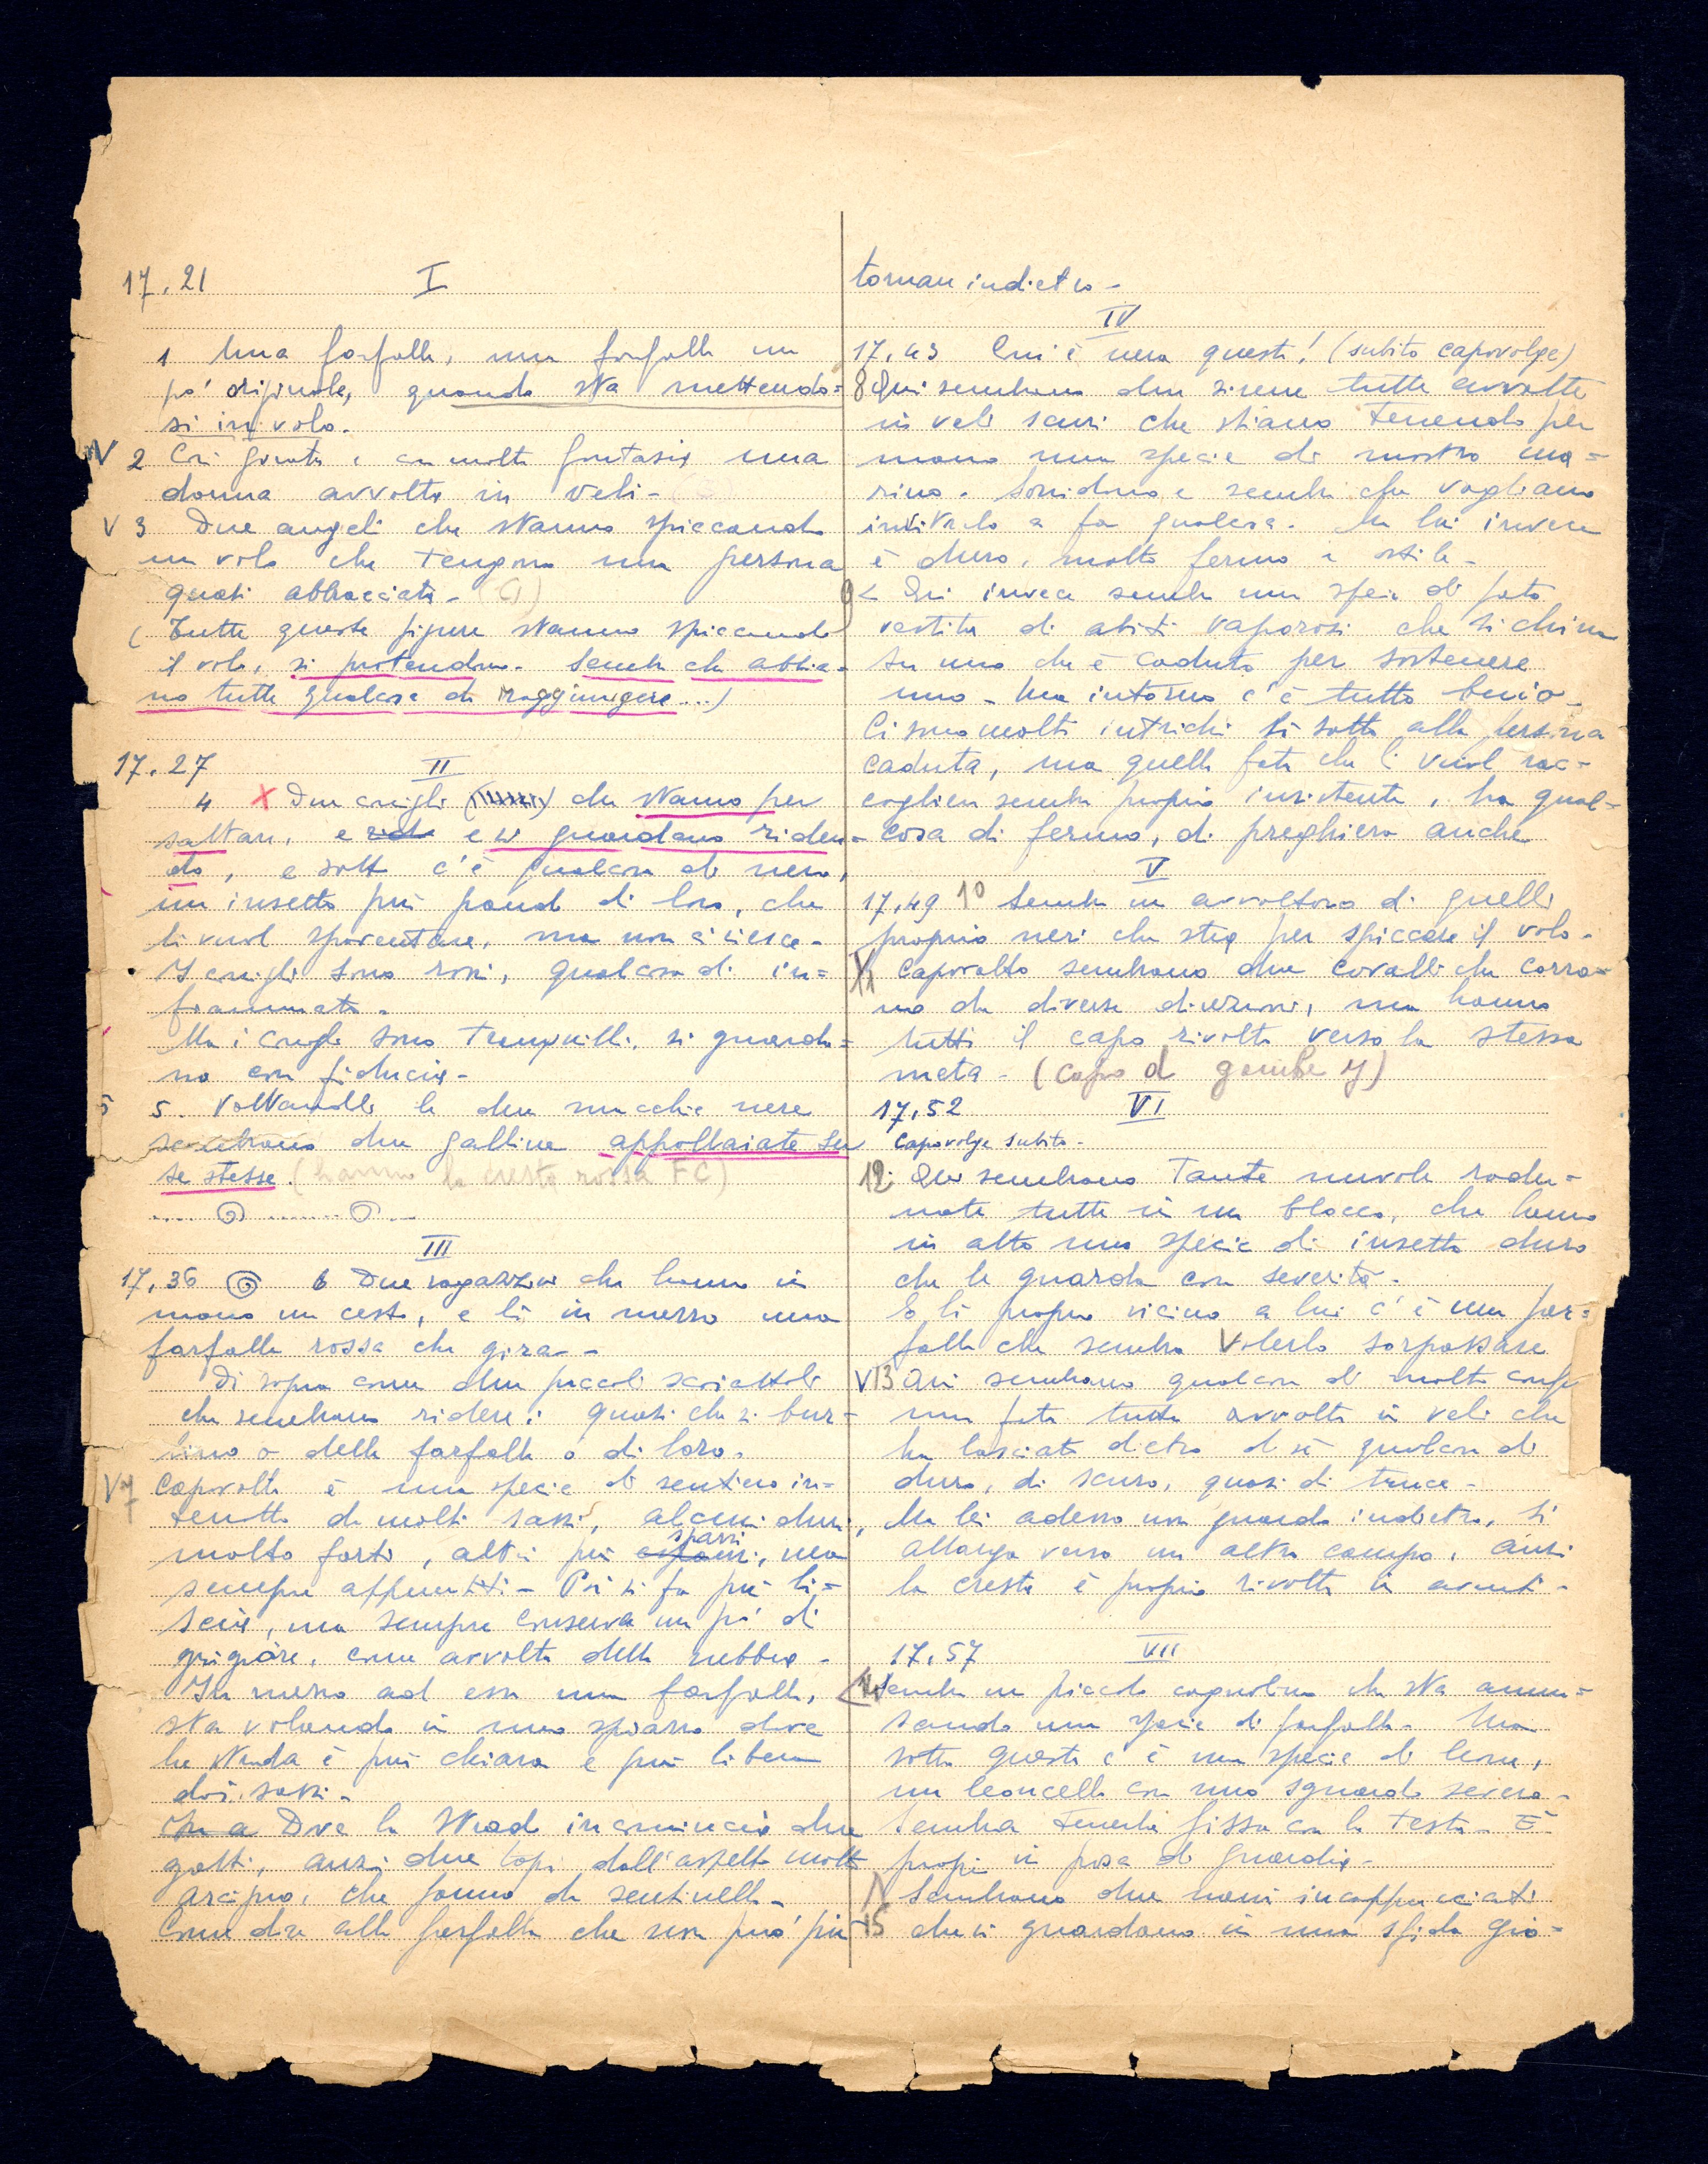 17.21 I
1 Una farfalla, una farfalla un
po' quando sta mettendo=
si in volo.
V 2 Così e con molta fantasia una
donna avvolta in veli -
V 3 Due angeli che stanno spiccando
un volo che tengono una persona
quasi abbracciata - (G)
(Tutte queste figure stanno spiccando
il volo, si protendono. Sembra che abbia=
no tutte qualcosa da raggiungere...)
17.27 II
4 X Due conigli che stanno per
saltare, e ride e si guardano riden=
do, e sotto c'è qualcosa di nero,
un insetto più grande di loro, che
li vuol spaventare, ma non ci riesce -
I conigli sono rossi, qualcosa di in=
fiammato -
Ma i conigli sono tranquilli, si guarda=
no con fiducia -
5 5. Voltandolo le due macchie nere
sembrano due galline appollaiate su
se stesse. (hanno la cresta rossa FC)
III
17.36 6 Due ragazzini che hanno in
mano un cesto, e lì in mezzo una
farfalla rossa che gira -
Di sopra come due piccoli scoiattoli
che sembrano ridere: quasi che si bur=
lino o della farfalla o di loro.
V7 Capovolta è una specie di sentiero in=
terrotto da molti sassi, alcuni duri,
spassi
molto forti, altri più, ma
sempre appuntiti - Poi si fa più li=
scio, ma sempre conserva un po' di
grigiore, come avvolta dalla nebbia -
In mezzo ad essa una farfalla,
sta volando in uno spiazzo dove
la strada è più chiara e più libera
dai sassi -
In a Dove la strada incomincia due
gatti, anzi due topi dall'aspetto molto
arcigno, che fanno da sentinella -
Come dire alla farfalla che non può più
tornare indietro -
IV
17.43 Qui è nera questa! (subito capovolge)
8 Qui sembrano due sirene tutte avvolte
in veli scuri che stiano tenendo per
mano una specie di mostro ma=
rino. Sorridono e sembra che vogliano
invitarlo a fare qualcosa. Ma lui invece
è duro, molto fermo e ostile -
9 < Qui invece sembra una specie di fata
vestita di abiti vaporosi che si china
su uno che è caduto per sostenere
uno - Ma intorno c'è tutto buio -
Ci sono molti intrichi lì sotto alla persona
caduta, ma quella fata che li vuol rac=
cogliere sembra proprio insistente, ha qual=
cosa di fermo, di preghiera anche
V
17.49 10 Sembra un avvoltoio di quelli
proprio neri che stia per spiccare il volo -
11 Capovolto sembrano due cavalli che corro=
no da diverse direzioni, ma hanno
tutti il capo rivolto verso la stessa
meta - (capo d gambe y)
17.52 VI
Capovolge subito -
12. Qui sembrano tante nuvole radu=
nate tutte in un blocco, che hanno
in alto una specie di insetto duro
che le guarda con severità -
E lì proprio vicino a lui c'è una far=
falla che sembra volerlo sorpassare
V 13 Qui sembrano qualcosa di molto
una fata tutta avvolta in veli che
ha lasciato dietro di sé qualcosa di
duro, di scuro, quasi di truce -
Ma lei adesso non guarda indietro, si
allarga verso un altro campo, anzi
la cresta è proprio rivolta in avanti -
17.57 VII
14 Sembra un piccolo cagnolino che sta annu=
sando una specie di farfalla. Ma
sotto questa c'è una specie di leone,
un leoncello con uno sguardo severo -
Sembra tenerla fissa con la testa - È
proprio in posa di guardia -
V Sembrano due nani incappucciati
15 che si guardano in una sfida gio=